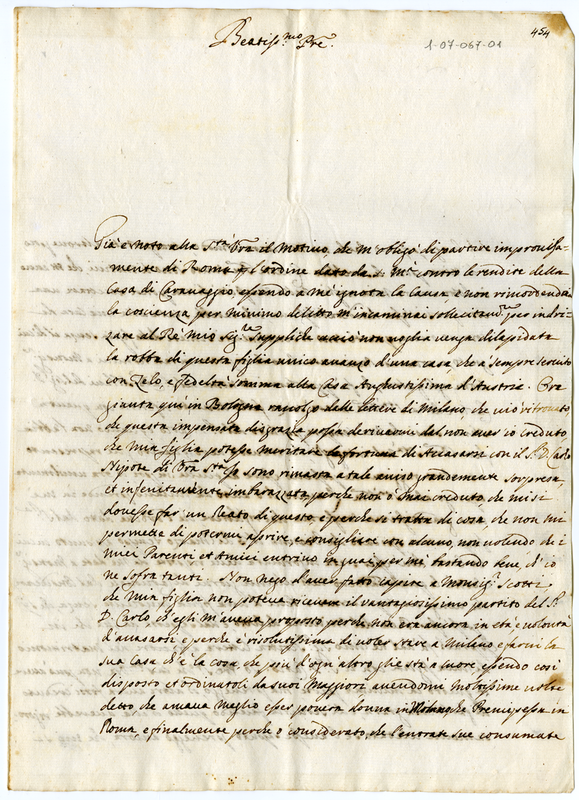 454
1-07-067-01
Beatiss.mo Pre.
Già è noto alla S.tà V.ra il Motivo, che m'obligò di partire improvisa-
mente di Roma l'ordine dato da S. M.tà contro le rendite della
Casa di Caravaggio essendo a mè ignota la Causa e non rimordendomi
la coscienza per minimo delitto m'incaminai sollecitam.te per indri-
zare al Rè mio Sig.re Suppliche acciò non voglia venga dilapidata
la robba di questa figlia unico avanzo d'una casa che à sempre servito
con Zelo, e fedeltà somma alla Casa Augustissima d'Austria. Ora
giunta quì in Bologna racolgo dalle lettere di Milano che viò ritrovato
che questa impensata disgrazia possa derivarmi dal non aver io creduto
che Mia figlia potesse meritare la fortuna di Acasarsi con il S.r D. Carlo
Nipote di V.ra S.tà Io sono rimasta a tale aviso grandemente sorpresa,
et infinitamente imbarazzata perche non ò mai creduto, che mi si
dovesse far un Reato di questo, e perche si tratta di cosa, che non mi
permette di potermi aprire, e consigliare con alcuno, non volendo che i
miei Parenti et Amici entrino in guai per me, bastando bene, ch'io
ne Sofra tanti. Non nego d'aver fatto capire a Monsig.r Scotti
che Mia figlia non poteva ricevere il vantagiosissimo partito del S.r
D. Carlo, ch'egli m'aveva proposto perche non era ancora in età, e volontà
d'acasarsi e perche è risolutissima di voler stare a Milano e farvi la
sua Casa ch'è la cosa che più d'ogni altro gli stà a cuore, essendo così
disposto et ordinatoli da suoi Maggiori avendomi moltissime volte
detto che amava meglio esser povera donna in Milano che Prencipessa in
Roma, e finalmente perche ò considerato, che l'entrate sue consumate